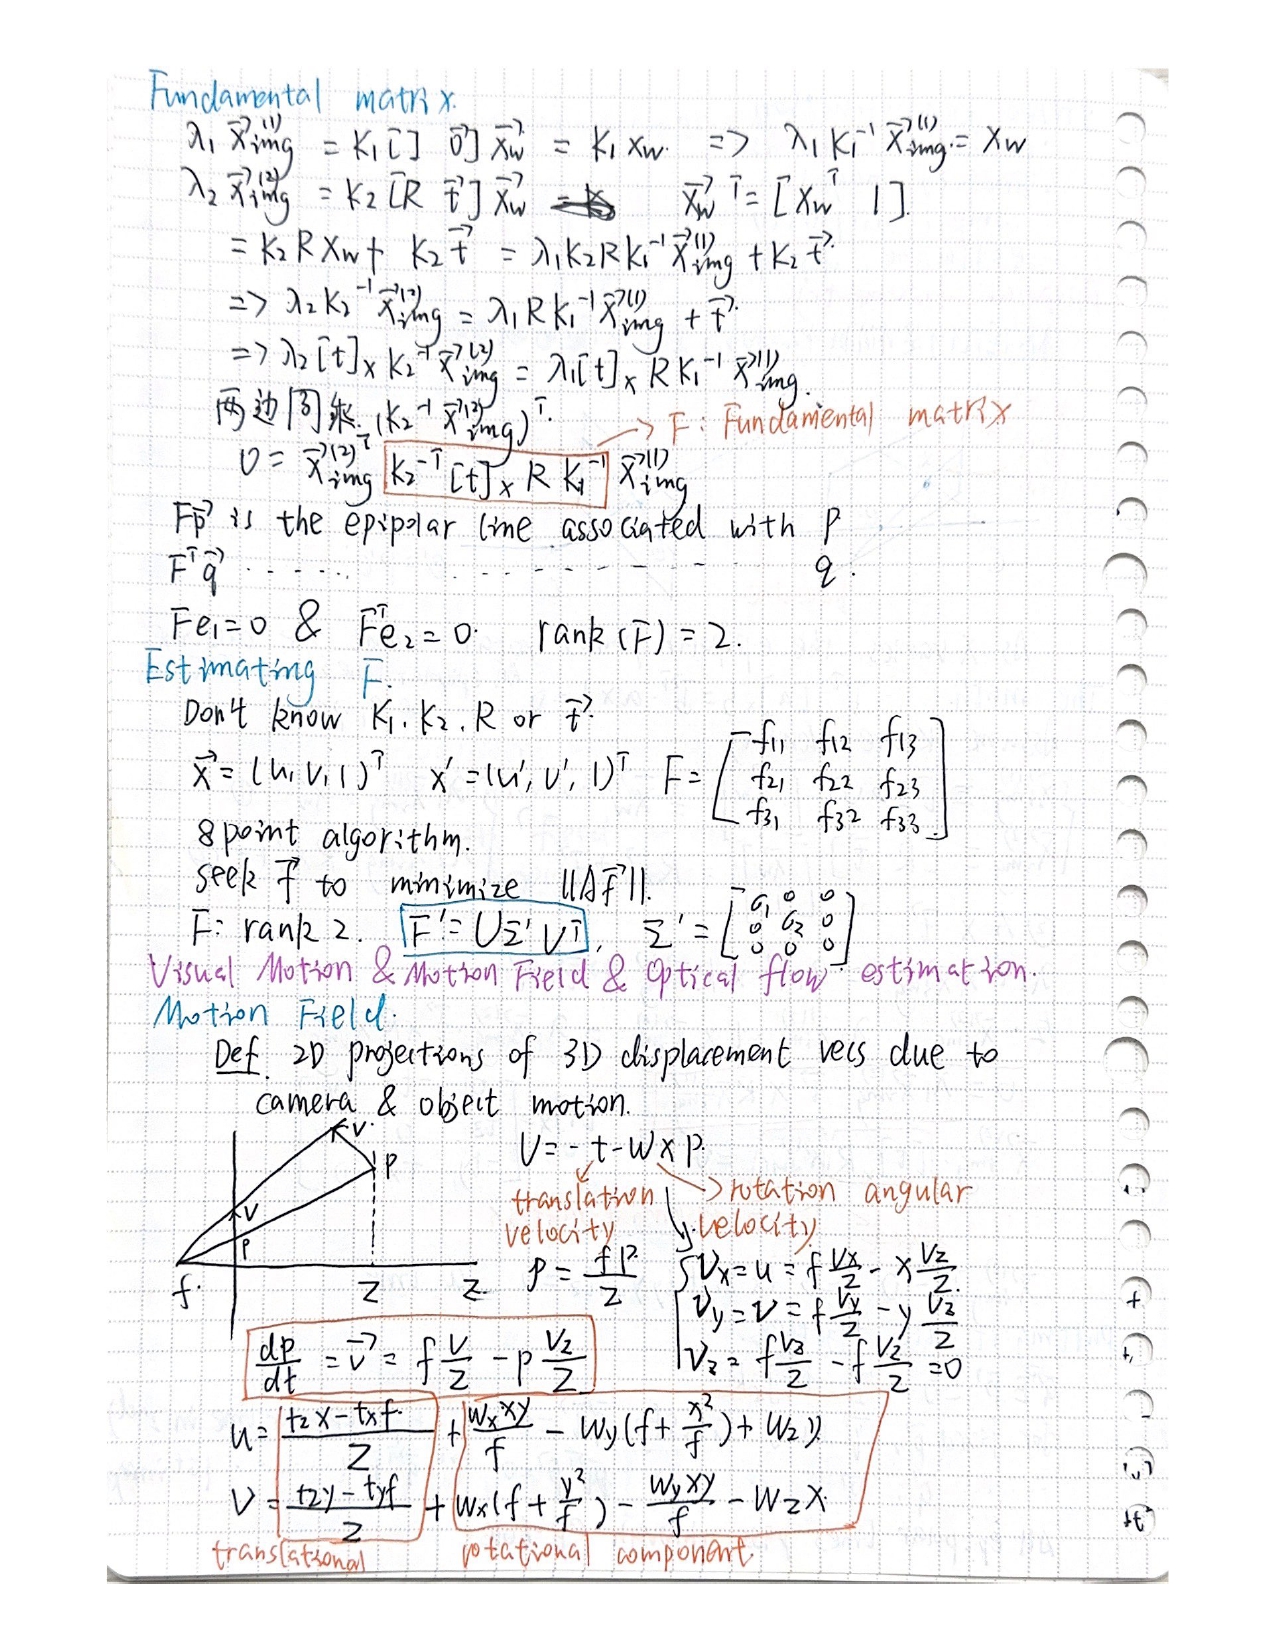 Fundamental matrix.
λ₁ x⃗img⁽¹⁾ = K₁[I 0⃗] x⃗w = K₁ xw. => λ₁ K₁⁻¹ x⃗img⁽¹⁾ = xw
λ₂ x⃗img⁽²⁾ = K₂[R t⃗] x⃗w x⃗wᵀ = [xwᵀ 1].
= K₂ R xw + K₂ t⃗ = λ₁K₂RK₁⁻¹ x⃗img⁽¹⁾ + K₂ t⃗.
=> λ₂ K₂⁻¹ x⃗img⁽²⁾ = λ₁ R K₁⁻¹ x⃗img⁽¹⁾ + t⃗.
=> λ₂ [t]ₓ K₂⁻¹ x⃗img⁽²⁾ = λ₁[t]ₓ R K₁⁻¹ x⃗img⁽¹⁾.
两边同乘 (K₂⁻¹ x⃗img⁽²⁾)ᵀ. → F: Fundamental matrix
0 = x⃗img⁽²⁾ᵀ K₂⁻ᵀ [t]ₓ R K₁⁻¹ x⃗img⁽¹⁾
Fp⃗ is the epipolar line associated with p
Fᵀq⃗ ..... - - - - - - - q.
Fe₁=0 & Fᵀe₂=0. rank(F)=2.
Estimating F.
Don't know K₁. K₂. R or t⃗.
x⃗ = (u, v, 1)ᵀ x' = (u', v', 1)ᵀ F = [f₁₁ f₁₂ f₁₃
f₂₁ f₂₂ f₂₃
f₃₁ f₃₂ f₃₃]
8 point algorithm.
seek f⃗ to minimize ||Af⃗||.
F: rank 2. F' = UΣ'Vᵀ, Σ' = [σ₁ 0 0
0 σ₂ 0
0 0 0]
Visual Motion & Motion Field & Optical flow estimation.
Motion Field.
Def. 2D projections of 3D displacement vecs due to
camera & object motion.
V.
P
v
p
f.
Z
Z.
V = -t - w x P.
translation velocity
→ rotation angular velocity
p = fP/Z
{ vx = u = f Vx/Z - x Vz/Z.
vy = v = f Vy/Z - y Vz/Z
vz = f Vz/Z - f Vz/Z = 0
dp/dt = v⃗ = f V/Z - p Vz/Z
u = (tzx - txf)/Z + wxxy/f - wy(f + x²/f) + wzy
v = (tzy - tyf)/Z + wx(f + y²/f) - wyxy/f - wzx.
translational rotational component.